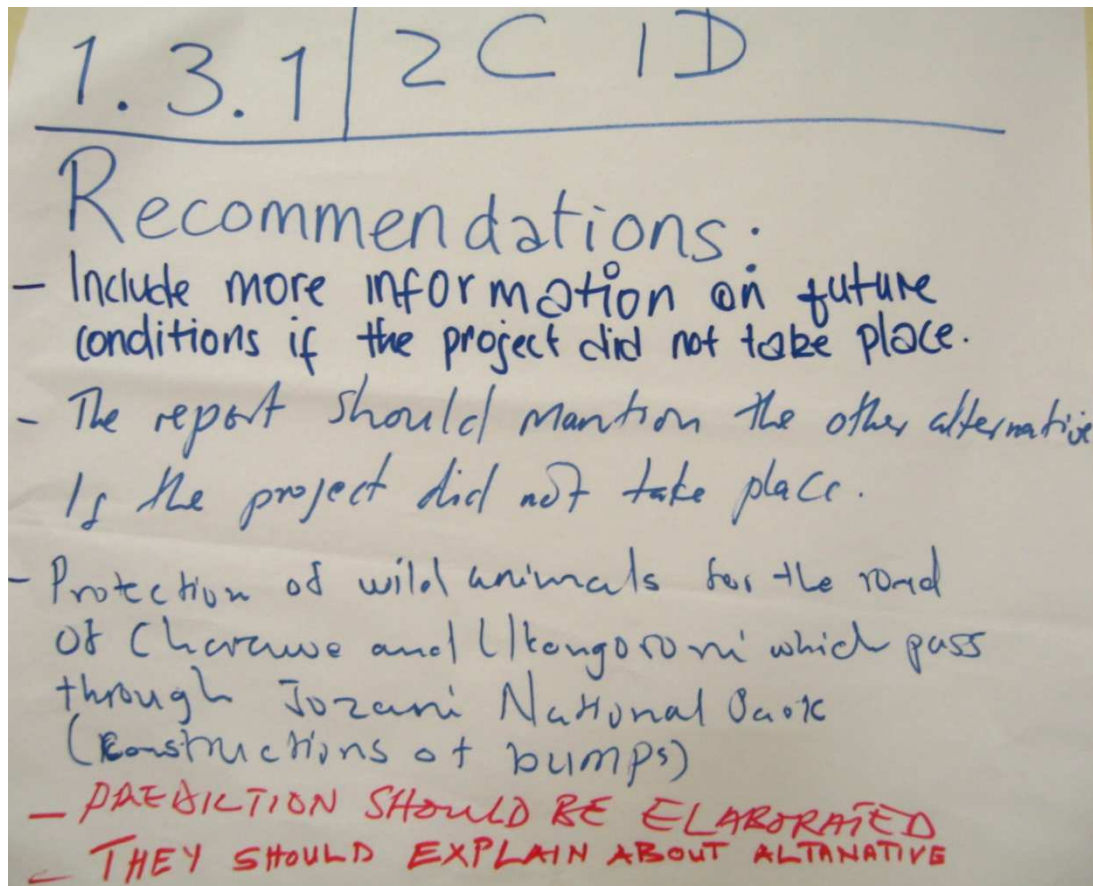 1.3.1 | 2C 1D
Recommendations:
- Include more information on future
conditions if the project did not take place.
- The report should mantion the other alternative
Is the project did not take place.
- Protection of wild animals for the road
of Charawe and Ukongoroni which pass
through Jozani National Park
(constructions of bumps)
- PREDICTION SHOULD BE ELABORATED
- THEY SHOULD EXPLAIN ABOUT ALTANATIVE